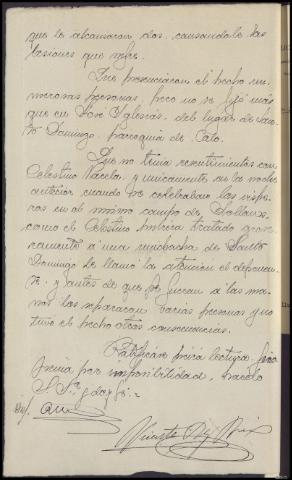 que le alcanzaron dos, causandole las
lesiones que sufre.
Que presenciaron el hecho nu-
merosas personas, pero no se fijó más
que en José Iglesias, del lugar de San-
to Domingo, parroquia de
Que no tenia resentimientos con
Celestino Varela, y unicamente en la noche
anterior cuando se celebraban las vispe-
ras en el mismo campo de
como el Celestino hubiera tratado gro-
seramente á una muchacha de Santo
Domingo le llamó la atención el deponen-
te, y antes de que se fueran á las ma-
nos los separaron varias personas y no
tuvo el hecho otras consecuencias.
Ratificáse previa lectura, 
por imposibilidad, hacelo
S. Sª y doy fé.=
Vicente